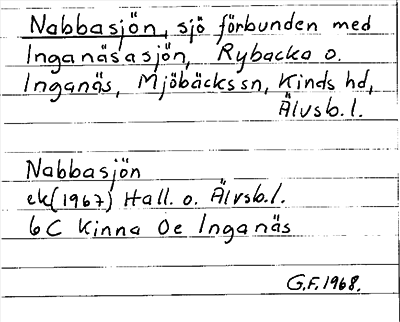 Nabbasjön, sjö förbunden med
Inganäsasjön, Rybacka o.
Inganäs, Mjöbäckssn, Kinds hd,
Älvsb. l.
Nabbasjön
ek (1967) Hall. o. Älvsb. l.
6C Kinna 0e Inganäs
G.F. 1968.